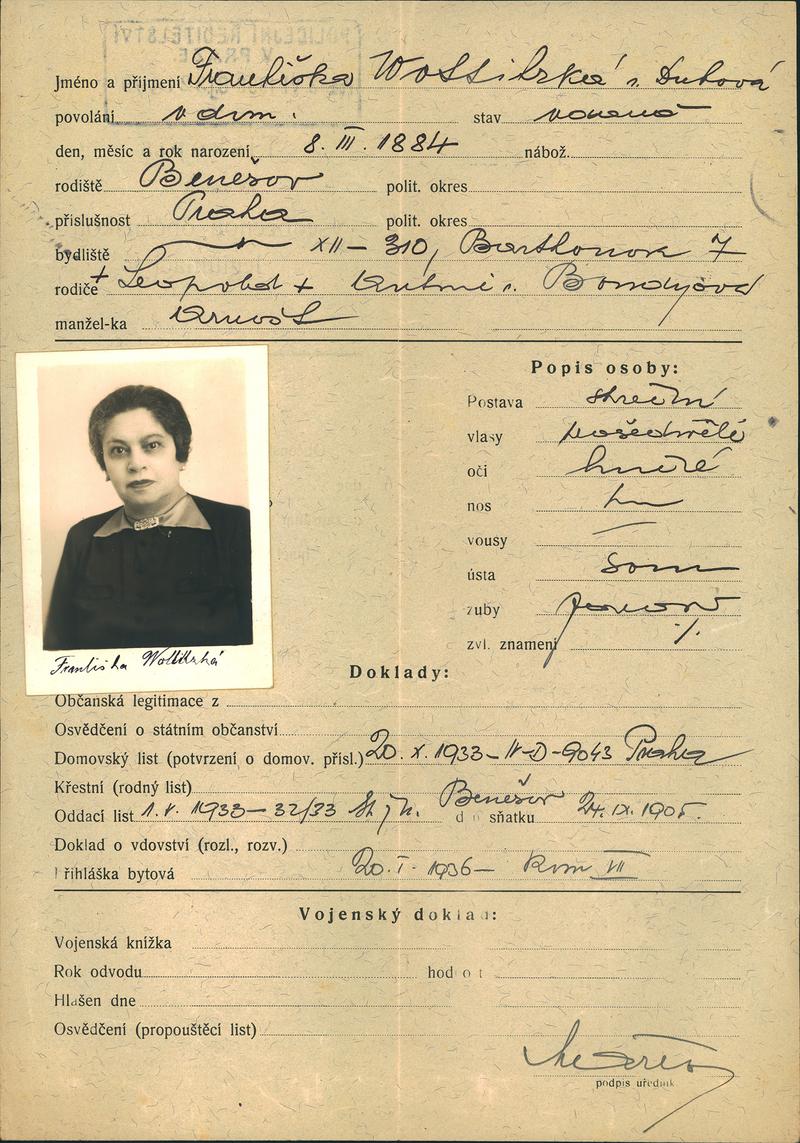 POLICEJNÍ ŘEDITELSTVÍ
V PRAZE
Jméno a přijmení Františka Wottitzká r. Dubová
povolání v dom. stav vdaná
den, měsíc a rok narození 8. III. 1884 nábož.
rodiště Benešov polit. okres
příslušnost Praha polit. okres
bydliště XII – 310, 7
rodiče + Leopold + r. Bondyová
manžel-ka Arnošt
Popis osoby:
Postava střední
vlasy prošedivělé
oči hnědé
nos
vousy —
ústa soum
zuby
zvl. znamení ./.
Františka Wottitzká
Doklady:
Občanská legitimace z
Osvědčení o státním občanství
Domovský list (potvrzení o domov. přísl.) 20. X. 1933 – IV-D-9043 Praha
Křestní (rodný list)
Oddací list 1. V. 1933 – 32/33 Benešov d o sňatku 24. IX. 1905.
Doklad o vdovství (rozl., rozv.)
Přihláška bytová 20. I. 1936 – kom VII
Vojenský doklad:
Vojenská knížka
Rok odvodu hod o t
Hlašen dne
Osvědčení (propouštěcí list)
podpis úředník